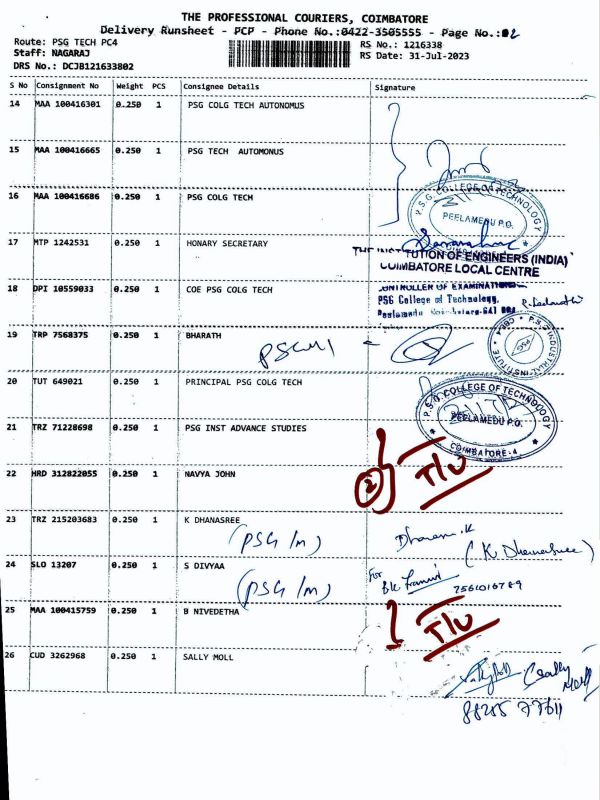 THE PROFESSIONAL COURIERS, COIMBATORE
Delivery Runsheet - PCP - Phone No.:0422-3505555 - Page No.:02
Route: PSG TECH PC4
RS No.: 1216338
Staff: NAGARAJ
RS Date: 31-Jul-2023
DRS No.: DCJB121633802
S No Consignment No Weight PCS Consignee Details Signature
14 MAA 100416301 0.250 1 PSG COLG TECH AUTONOMUS
15 MAA 100416665 0.250 1 PSG TECH AUTOMONUS
16 MAA 100416686 0.250 1 PSG COLG TECH
P.S.G. COLLEGE OF TECHNOLOGY
PEELAMEDU P.O.
17 MTP 1242531 0.250 1 HONARY SECRETARY
THE INSTITUTION OF ENGINEERS (INDIA)
COIMBATORE LOCAL CENTRE
18 DPI 10559033 0.250 1 COE PSG COLG TECH
CONTROLLER OF EXAMINATIONS
PSG College of Technology,
Peelamedu Coimbatore-641 004
19 TRP 7568375 0.250 1 BHARATH
P.S.G. INDUSTRIAL INSTITUTE
PSG
20 TUT 649021 0.250 1 PRINCIPAL PSG COLG TECH
P.S.G. COLLEGE OF TECHNOLOGY
PEELAMEDU P.O.
COIMBATORE-4
21 TRZ 71228698 0.250 1 PSG INST ADVANCE STUDIES
22 HRD 312822055 0.250 1 NAVYA JOHN
2 T/U
23 TRZ 215203683 0.250 1 K DHANASREE
(PSG/m) Dhanasree.K
(K Dhanasree)
24 SLO 13207 0.250 1 S DIVYAA
(PSG/m) For
25 MAA 100415759 0.250 1 B NIVEDETHA
T/U
26 CUD 3262968 0.250 1 SALLY MOLL
(Sally Moll)
88285 77611